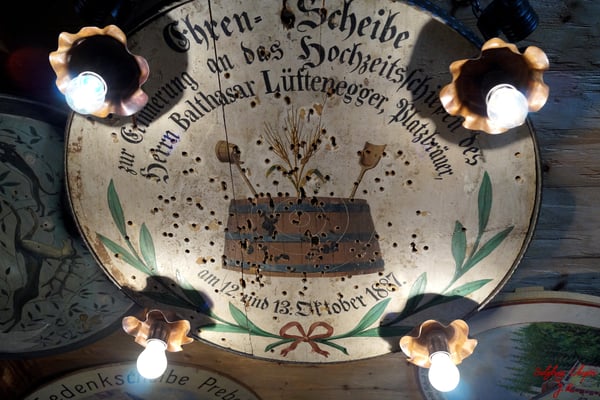 Ehren-Scheibe
zur Erinnerung an das Hochzeitsschießen des
Herrn Balthasar Lüftenegger, Platzbräuer,
am 12. und 13. Oktober 1897.
Gedenkscheibe